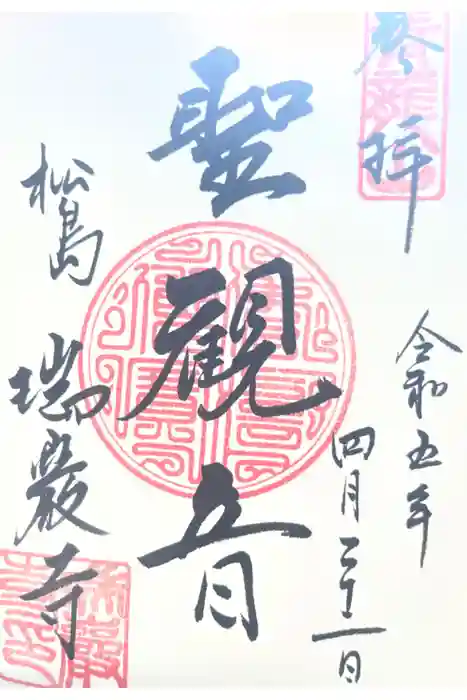 参拝
令和五年
四月二十一日
聖觀音
松島
瑞巌寺